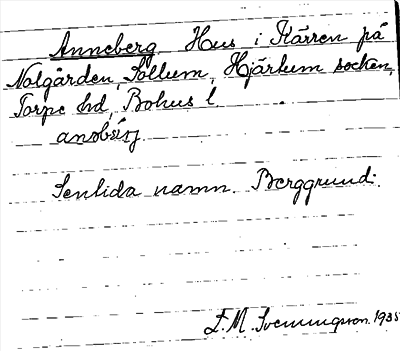 Anneberg. Hus i Kärren på
Nolgården, Sollum, Hjärtum socken,
Torpe hd, Bohus l.
Senlida namn. Berggrund.
F. M. Svenningsson. 1935